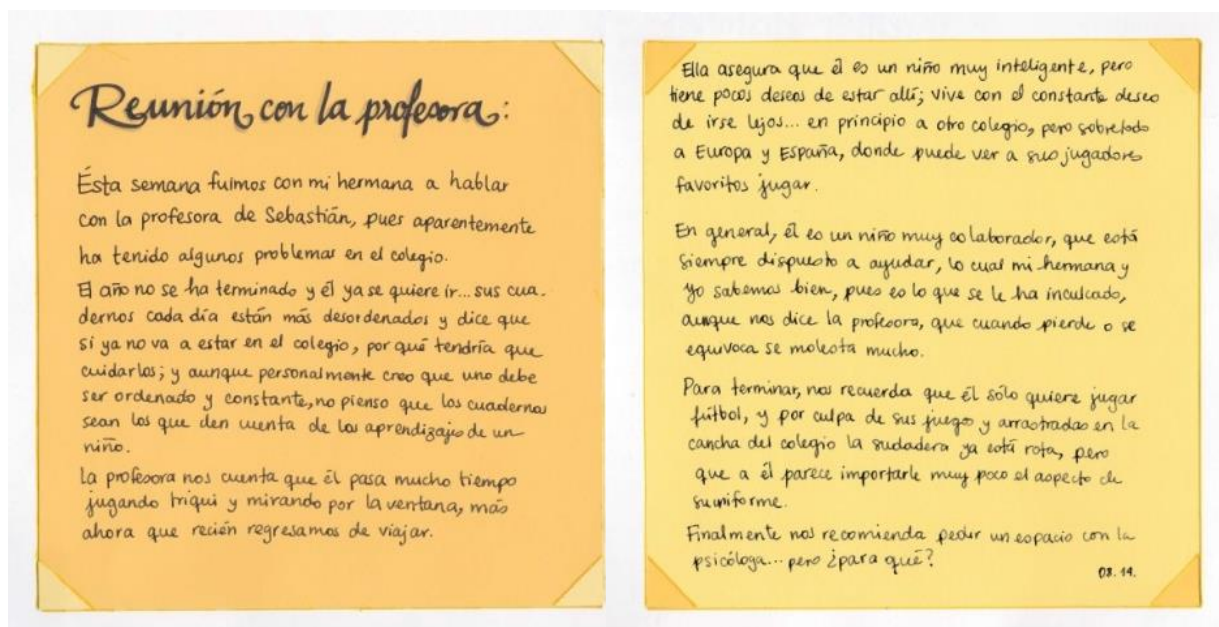 Reunión con la profesora:
Ésta semana fuimos con mi hermana a hablar
con la profesora de Sebastián, pues aparentemente
ha tenido algunos problemas en el colegio.
El año no se ha terminado y él ya se quiere ir... sus cua-
dernos cada día están más desordenados y dice que
si ya no va a estar en el colegio, por qué tendría que
cuidarlos; y aunque personalmente creo que uno debe
ser ordenado y constante, no pienso que los cuadernos
sean los que den cuenta de los aprendizajes de un
niño.
La profesora nos cuenta que él pasa mucho tiempo
jugando triqui y mirando por la ventana, más
ahora que recién regresamos de viajar.
Ella asegura que él es un niño muy inteligente, pero
tiene pocos deseos de estar allí; vive con el constante deseo
de irse lejos... en principio a otro colegio, pero sobretodo
a Europa y España, donde puede ver a sus jugadores
favoritos jugar.
En general, él es un niño muy colaborador, que está
siempre dispuesto a ayudar, lo cual mi hermana y
yo sabemos bien, pues es lo que se le ha inculcado,
aunque nos dice la profesora, que cuando pierde o se
equivoca se molesta mucho.
Para terminar, nos recuerda que él sólo quiere jugar
fútbol, y por culpa de sus juegos y arrastradas en la
cancha del colegio la sudadera ya está rota, pero
que a él parece importarle muy poco el aspecto de
su uniforme.
Finalmente nos recomienda pedir un espacio con la
psicóloga... pero ¿para qué?
08.14.